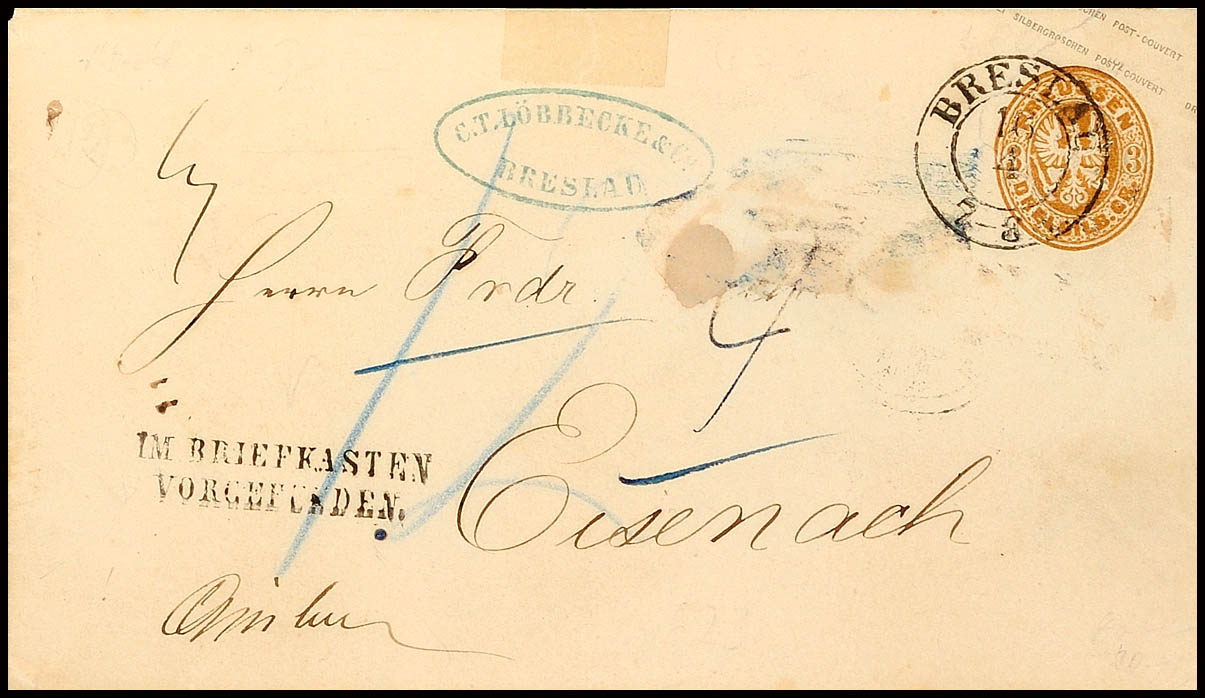 POST-COUVERT
SILBERGROSCHEN POST-COUVERT
BRESLAU
PREUSSEN
3
DREI SILB. GR.
C.T. LÖBBECKE & Co
BRESLAU
Herrn Frdr.
4
IM BRIEFKASTEN
VORGEFUNDEN.
Eisenach